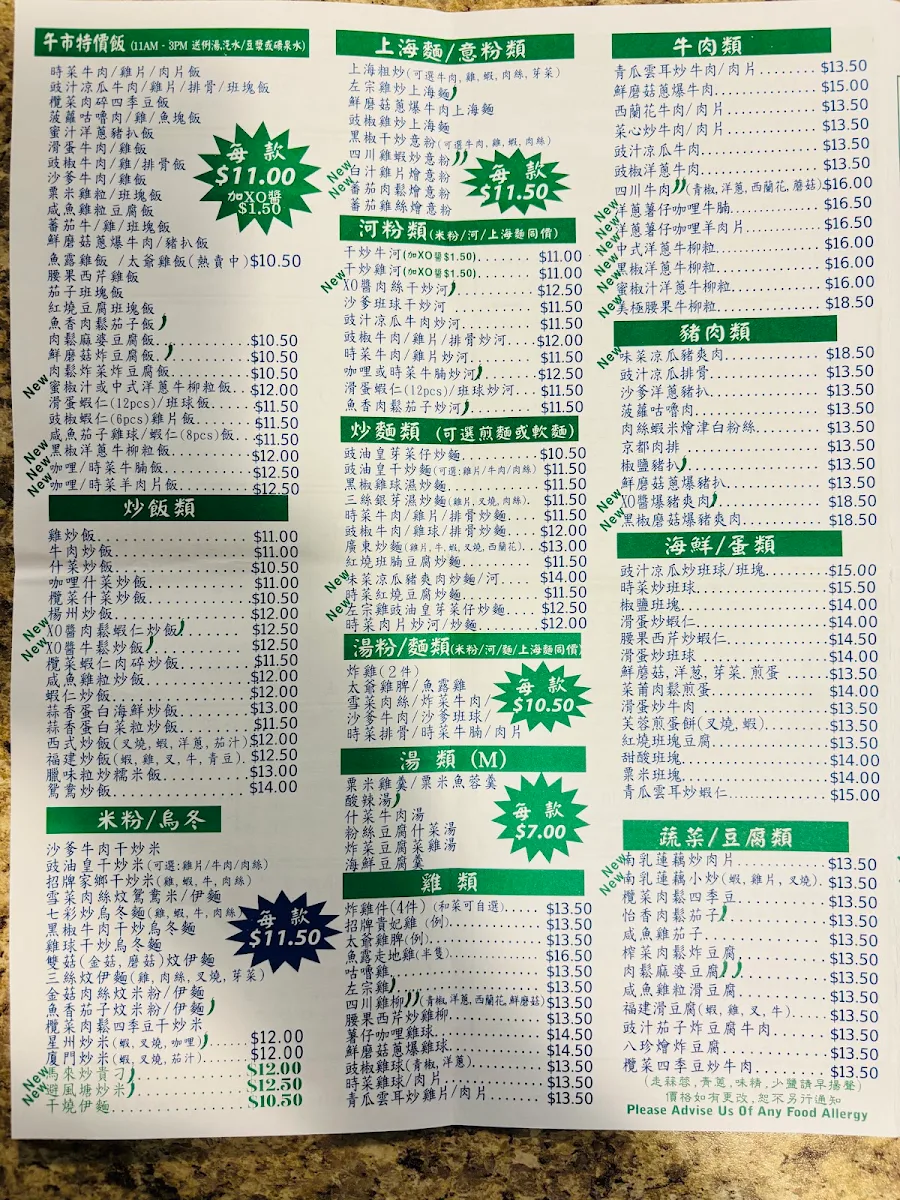 午市特價飯 (11AM - 3PM 送例湯,汽水/豆漿或礦泉水)
時菜牛肉/雞片/肉片飯
豉汁凉瓜牛肉/雞片/排骨/班塊飯
欖菜肉碎四季豆飯
菠蘿咕嚕肉/雞/魚塊飯
蜜汁洋蔥豬扒飯
滑蛋牛肉/雞飯
豉椒牛肉/雞/排骨飯
沙爹牛肉/雞飯
粟米雞粒/班塊飯
咸魚雞粒豆腐飯
蕃茄牛/雞/班塊飯
鮮磨菇蔥爆牛肉/豬扒飯
每 款
$11.00
加XO醬
$1.50
魚露雞飯 /太爺雞飯(熱賣中)$10.50
腰果西芹雞飯
茄子班塊飯
紅燒豆腐班塊飯
魚香肉鬆茄子飯
肉鬆麻婆豆腐飯 $10.50
鮮蘑菇炸豆腐飯 $10.50
肉鬆炸菜炸豆腐飯 $10.50
New 蜜椒汁或中式洋蔥牛柳粒飯 $12.00
滑蛋蝦仁(12pcs)/班球飯 $11.50
豉椒蝦仁(6pcs)雞片飯 $11.50
咸魚茄子雞球/蝦仁(8pcs)飯 $11.50
New 黑椒洋蔥牛柳粒飯 $12.00
New 咖哩/時菜牛腩飯 $12.50
New 咖哩/時菜羊肉片飯 $12.50
炒飯類
雞炒飯 $11.00
牛肉炒飯 $11.00
什菜炒飯 $10.50
咖哩什菜炒飯 $11.00
欖菜什菜炒飯 $10.50
楊州炒飯 $12.00
New XO醬肉鬆蝦仁炒飯 $12.50
New XO醬牛鬆炒飯 $12.50
欖菜蝦仁肉碎炒飯 $11.50
咸魚雞粒炒飯 $12.00
蝦仁炒飯 $12.00
蒜香蛋白海鮮炒飯 $13.00
蒜香蛋白菜粒炒飯 $11.50
西式炒飯(叉燒,蝦,洋蔥,茄汁) $12.00
福建炒飯(蝦,雞,叉,牛,青豆) $12.50
臘味粒炒糯米飯 $13.00
鴛鴦炒飯 $14.00
米粉/烏冬
沙爹牛肉干炒米
豉油皇干炒米(可選:雞片/牛肉/肉絲)
招牌家鄉干炒米(雞,蝦,牛,肉絲)
雪菜肉絲炆鴛鴦米/伊麵
七彩炒烏冬麵(雞,蝦,牛,肉絲)
黑椒牛肉干炒烏冬麵
雞球干炒烏冬麵
雙菇(金菇,磨菇)炆伊麵
三絲炆伊麵(雞,肉絲,叉燒,芽菜)
金菇肉絲炆米粉/伊麵
魚香茄子炆米粉/伊麵
欖菜肉鬆四季豆干炒米
每 款
$11.50
星州炒米(蝦,叉燒,咖哩) $12.00
廈門炒米(蝦,叉燒,茄汁) $12.00
New 馬來炒貴刁 $12.00
New 避風塘炒米 $12.50
干燒伊麵 $10.50
上海麵/意粉類
上海粗炒(可選牛肉,雞,蝦,肉絲,芽菜)
左宗雞炒上海麵
鮮磨菇蔥爆牛肉上海麵
豉椒雞炒上海麵
黑椒干炒意粉(可選牛肉,雞,蝦,肉絲)
四川雞蝦炒意粉
New 白汁雞片燴意粉
New 蕃茄肉鬆燴意粉
蕃茄雞絲燴意粉
每 款
$11.50
河粉類(米粉/河/上海麵同價)
干炒牛河(加XO醬$1.50) $11.00
干炒雞河(加XO醬$1.50) $11.00
New XO醬肉絲干炒河 $12.50
沙爹班球干炒河 $11.50
豉汁凉瓜牛肉炒河 $11.50
豉椒牛肉/雞片/排骨炒河 $12.00
時菜牛肉/雞片炒河 $11.50
咖哩或時菜牛腩炒河 $12.50
滑蛋蝦仁(12pcs)/班球炒河 $11.50
魚香肉鬆茄子炒河 $11.50
炒麵類 (可選煎麵或軟麵)
豉油皇芽菜仔炒麵 $10.50
豉油皇干炒麵(可選:雞片/牛肉/肉絲) $11.50
黑椒雞球濕炒麵 $11.50
三絲銀芽濕炒麵(雞片,叉燒,肉絲) $11.50
時菜牛肉/雞片/排骨炒麵 $11.50
豉椒牛肉/雞球/排骨炒麵 $12.00
廣東炒麵(雞片,牛,蝦,叉燒,西蘭花) $13.00
紅燒班腩豆腐炒麵 $11.50
New 味菜凉瓜豬爽肉炒麵/河 $14.00
時菜紅燒豆腐炒麵 $11.50
New 左宗雞豉油皇芽菜仔炒麵 $12.50
時菜肉片炒河/炒麵 $12.00
湯粉/麵類(米粉/河/麵/上海麵同價)
炸雞(2件)
太爺雞脾/魚露雞
雪菜肉絲/炸菜牛肉
沙爹牛肉/沙爹班球/
時菜排骨/時菜牛腩/肉片
每 款
$10.50
湯 類 (M)
粟米雞羹/粟米魚蓉羹
酸辣湯
什菜牛肉湯
粉絲豆腐什菜湯
炸菜豆腐菜雞湯
海鮮豆腐羹
每 款
$7.00
雞 類
炸雞件(4件) (和菜可自選) $13.50
招牌貴妃雞 (例) $13.50
太爺雞脾(例) $13.50
魚露走地雞(半隻) $16.50
咕嚕雞 $13.50
左宗雞 $13.50
四川雞柳(青椒,洋蔥,西蘭花,鮮蘑菇) $13.50
腰果西芹炒雞柳 $13.50
薯仔咖哩雞球 $14.50
鮮蘑菇蔥爆雞球 $14.50
豉椒雞球(青椒,洋蔥) $13.50
時菜雞球/肉片 $13.50
青瓜雲耳炒雞片/肉片 $13.50
牛肉類
青瓜雲耳炒牛肉/肉片 $13.50
鮮蘑菇蔥爆牛肉 $15.00
西蘭花牛肉/肉片 $13.50
菜心炒牛肉/肉片 $13.50
豉汁凉瓜牛肉 $13.50
豉椒洋蔥牛肉 $13.50
四川牛肉(青椒,洋蔥,西蘭花,蘑菇) $16.00
New 洋蔥薯仔咖哩牛腩 $16.50
New 洋蔥薯仔咖哩羊肉片 $16.50
New 中式洋蔥牛柳粒 $16.00
New 黑椒洋蔥牛柳粒 $16.00
New 蜜椒汁洋蔥牛柳粒 $16.00
New 美極腰果牛柳粒 $18.50
豬肉類
New 味菜凉瓜豬爽肉 $18.50
豉汁凉瓜排骨 $13.50
沙爹洋蔥豬扒 $13.50
菠蘿咕嚕肉 $13.50
肉絲蝦米燴津白粉絲 $13.50
京都肉排 $13.50
椒鹽豬扒 $13.50
鮮蘑菇蔥爆豬扒 $13.50
New XO醬爆豬爽肉 $18.50
New 黑椒磨菇爆豬爽肉 $18.50
海鮮/蛋類
豉汁凉瓜炒班球/班塊 $15.00
時菜炒班球 $15.50
椒鹽班塊 $14.00
滑蛋炒蝦仁 $14.00
腰果西芹炒蝦仁 $14.50
滑蛋炒班球 $14.00
鮮蘑菇,洋蔥,芽菜,煎蛋 $14.00
菜莆肉鬆煎蛋 $14.00
滑蛋炒牛肉 $13.50
芙蓉煎蛋餅(叉燒,蝦) $13.50
紅燒班塊豆腐 $13.50
甜酸班塊 $14.00
粟米班塊 $14.00
青瓜雲耳炒蝦仁 $15.00
蔬菜/豆腐類
New 南乳蓮藕炒肉片 $13.50
New 南乳蓮藕小炒(蝦,雞片,叉燒) $13.50
欖菜肉鬆四季豆 $13.50
怡香肉鬆茄子 $13.50
咸魚雞茄子 $13.50
榨菜肉鬆炸豆腐 $13.50
肉鬆麻婆豆腐 $13.50
咸魚雞粒滑豆腐 $13.50
福建滑豆腐(蝦,雞,叉,牛) $13.50
豉汁茄子炸豆腐牛肉 $13.50
八珍燴炸豆腐 $13.50
欖菜四季豆炒牛肉 $13.50
(走蒜蓉,青蔥,味精,少鹽請早揚聲)
價格如有更改,恕不另行通知
Please Advise Us Of Any Food Allergy